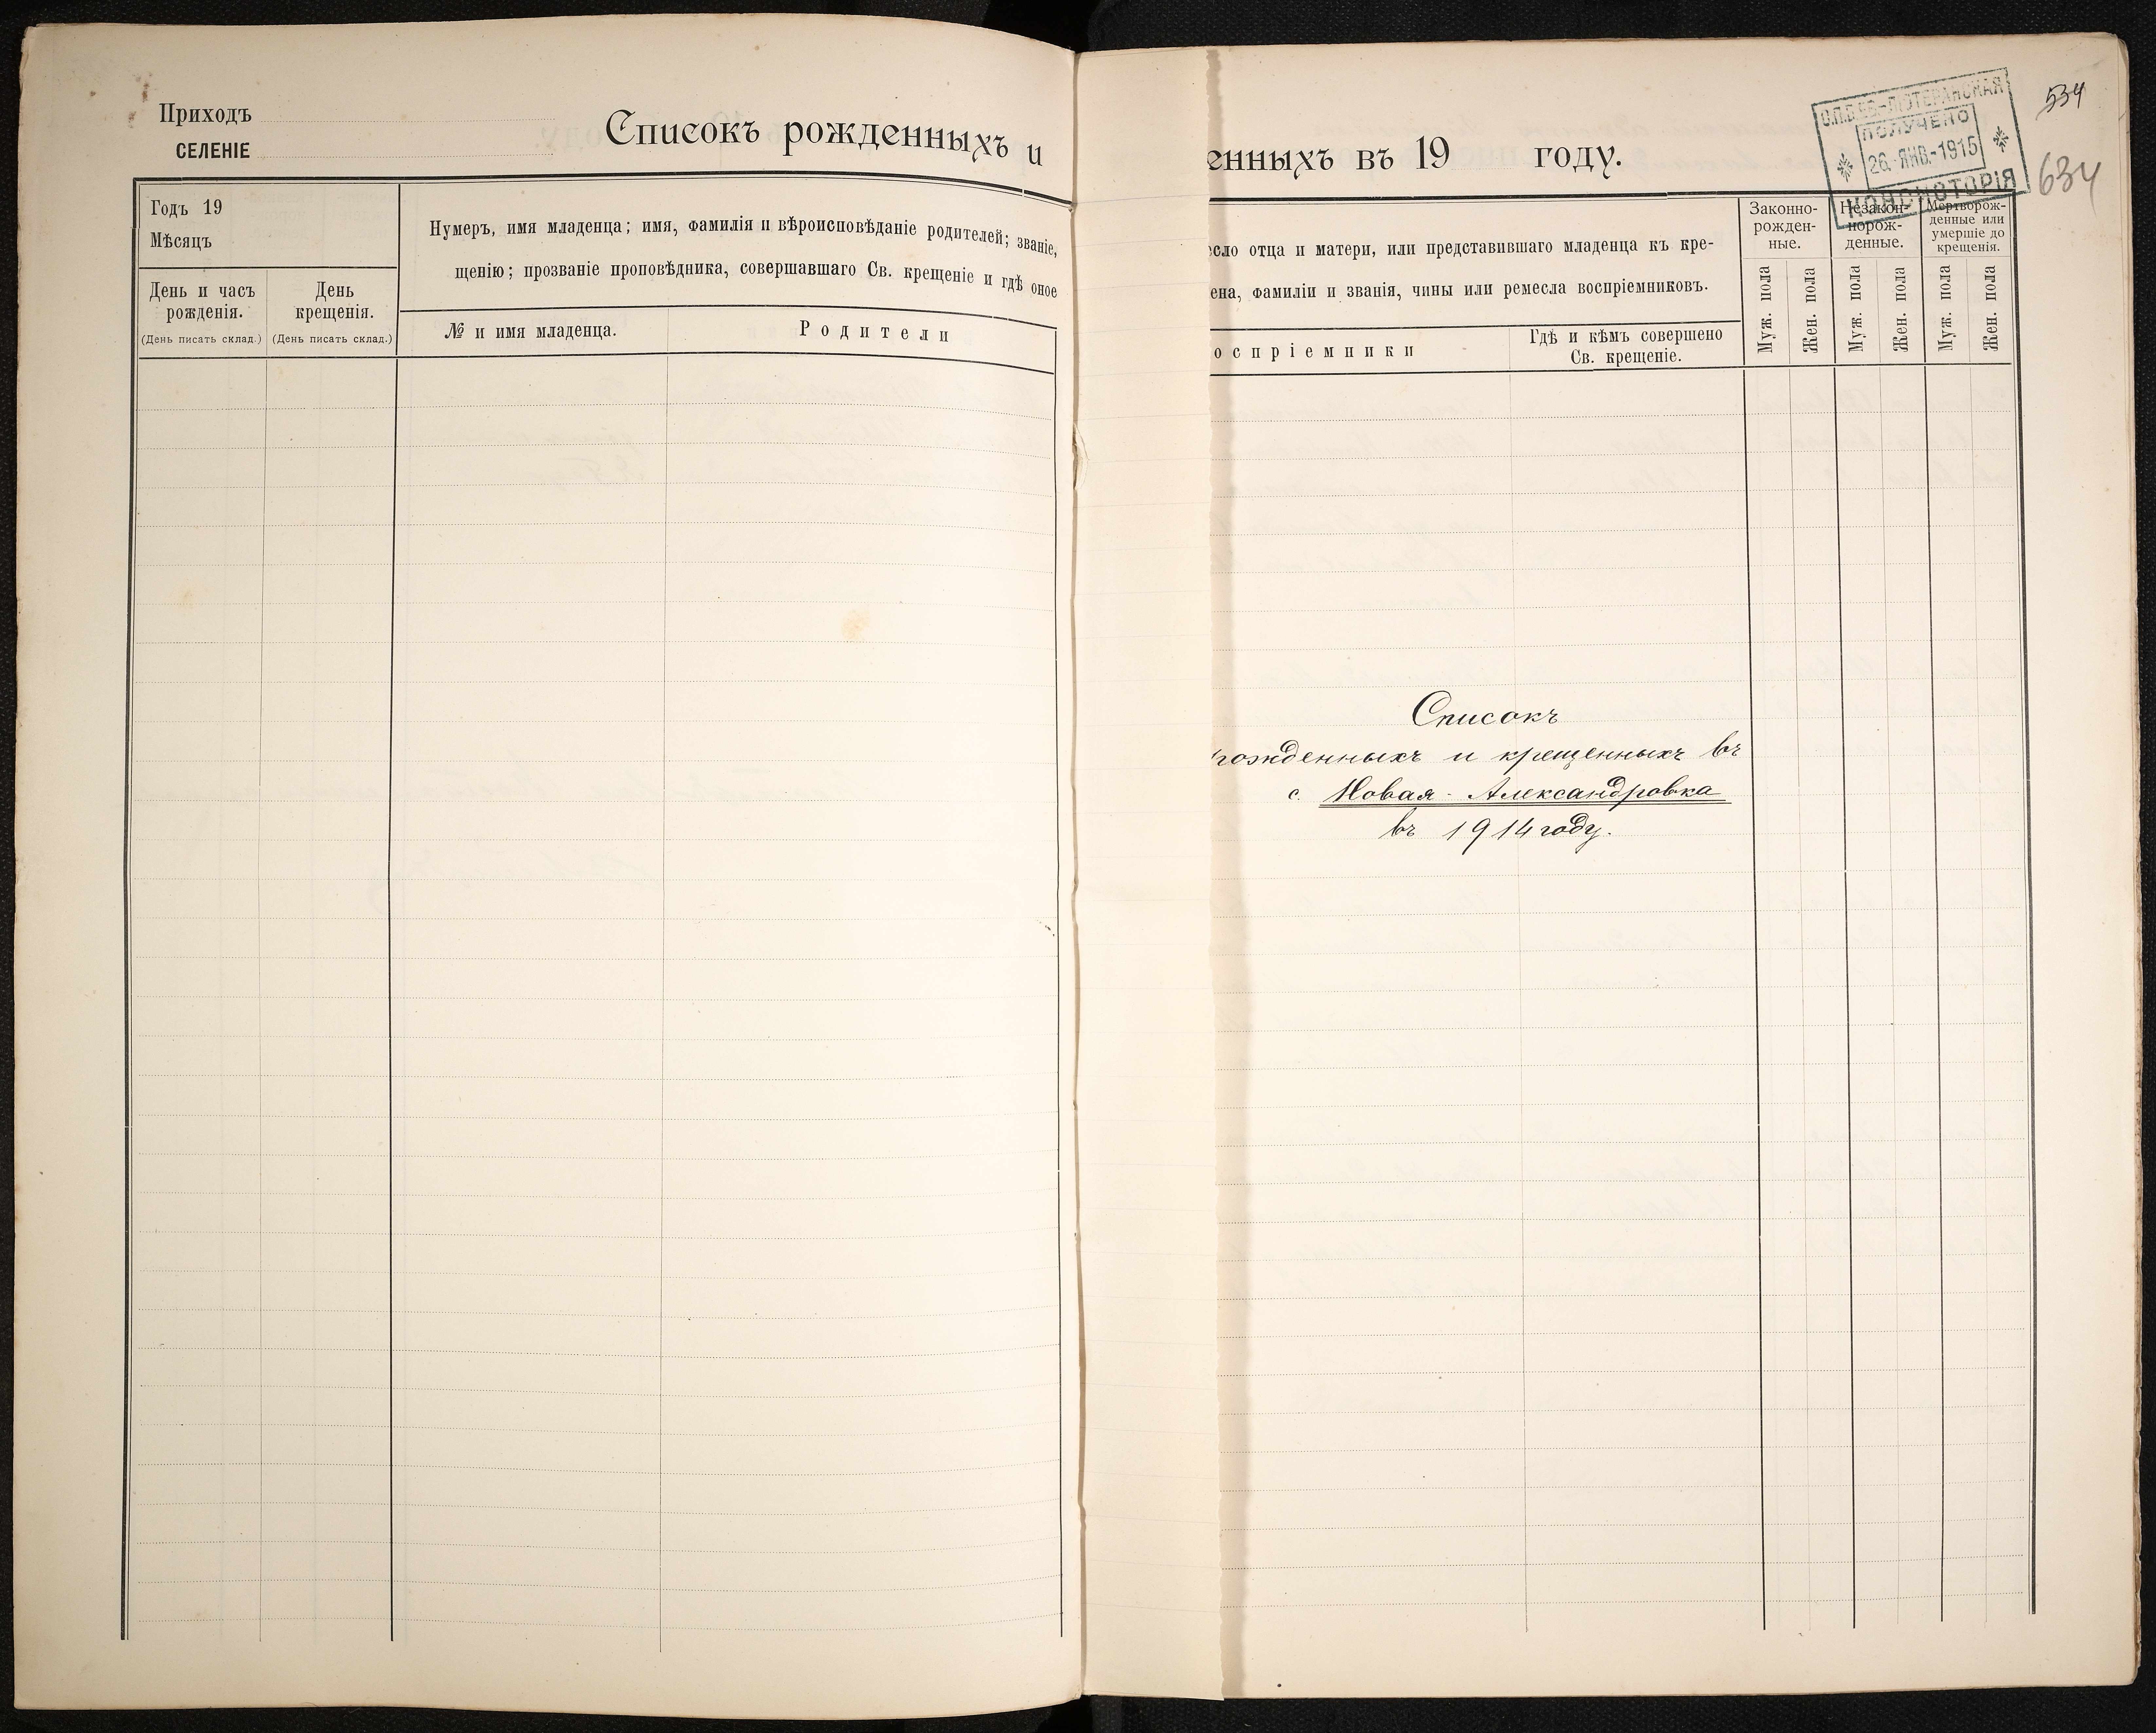 Приходъ
СЕЛЕНІЕ
Списокъ рожденныхъ и
Годъ 19
Мѣсяцъ
День и часъ
рожденія.
(День писать склад.)
День
крещенія.
(День писать склад.)
Нумеръ, имя младенца; имя, фамилія и вѣроисповѣданіе родителей; званіе,
щенію; прозваніе проповѣдника, совершавшаго Св. крещеніе и гдѣ оное
№ и имя младенца.
Родители
енныхъ въ 19 году.
С.П.Б. ЕВ.-ЛЮТЕРАНСКАЯ
ПОЛУЧЕНО
26.-ЯНВ.-1915
КОНСИСТОРІЯ
534
634
сло отца и матери, или представившаго младенца къ кре-
ена, фамиліи и званія, чины или ремесла воспріемниковъ.
оспріемники
Гдѣ и кѣмъ совершено
Св. крещеніе.
Законно-
рожден-
ные.
Незакон-
норож-
денные.
Мертворож-
денные или
умершіе до
крещенія.
Муж. пола
Жен. пола
Муж. пола
Жен. пола
Муж. пола
Жен. пола
Списокъ
рожденныхъ и крещенныхъ въ
с. Новая-Александровка
въ 1914 году.